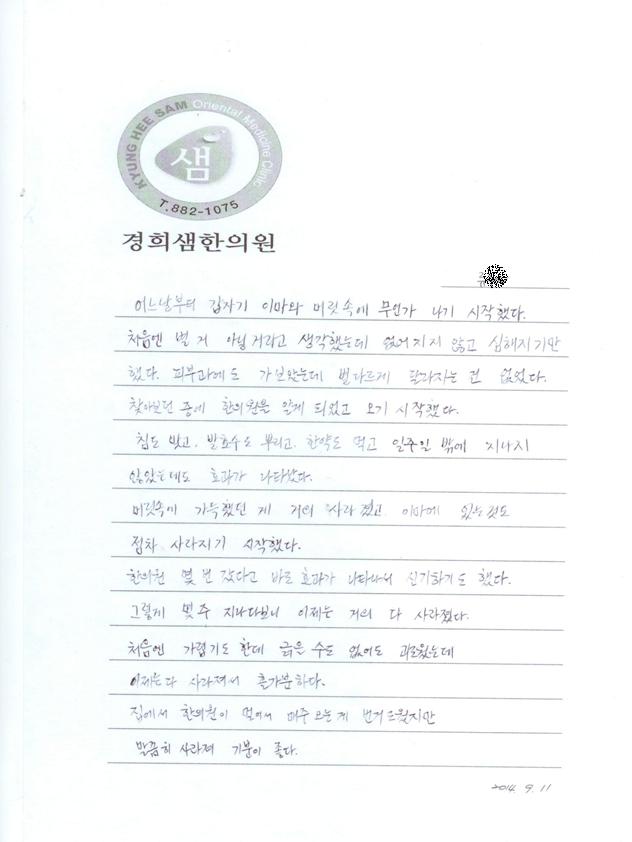 KYUNG HEE SAM Oriental Medicine Clinic
샘
T.882-1075
경희샘한의원
어느날부터 갑자기 이마와 머릿속에 무언가 나기 시작했다.
처음엔 별 거 아닐거라고 생각했는데 없어지지 않고 심해지기만
했다. 피부과에도 가보았는데 별다르게 달라지는 건 없었다.
찾아보던 중에 한의원을 알게 되었고 오기 시작했다.
침도 맞고, 발효수도 뿌리고, 한약도 먹고 일주일 밖에 지나지
않았는데도 효과가 나타났다.
머릿속에 가득했던 게 거의 사라졌고 이마에 있는것도
점차 사라지기 시작했다.
한의원 몇 번 갔다고 바로 효과가 나타나서 신기하기도 했다.
그렇게 몇 주 지나다보니 이제는 거의 다 사라졌다.
처음엔 가렵기도 한데 긁을 수도 없어도 괴로웠는데
이제는 다 사라져서 홀가분하다.
집에서 한의원이 멀어서 매주 오는게 번거로웠지만
말끔히 사라져 기분이 좋다.
2014. 9. 11